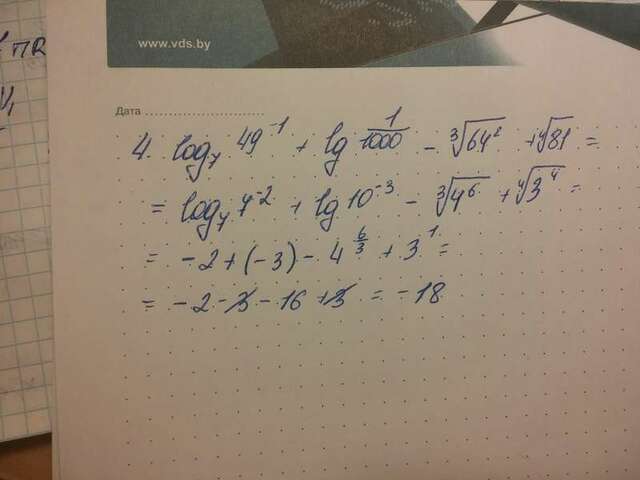 www.vds.by
Дата
4. log₇ 49⁻¹ + lg 1/1000 - ∛64² + ∜81 =
= log₇ 7⁻² + lg 10⁻³ - ∛4⁶ + ∜3⁴ =
= -2 + (-3) - 4^(6/3) + 3¹ =
= -2 - 3 - 16 + 3 = -18